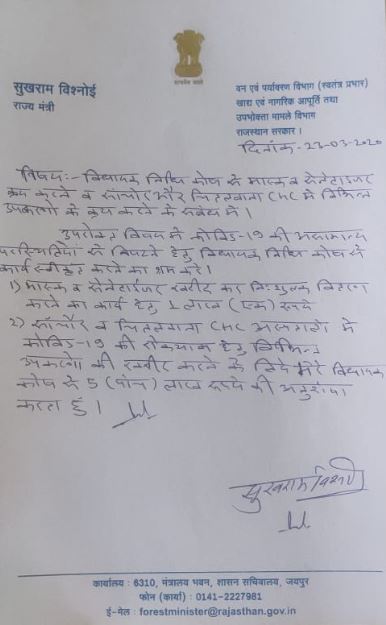 सुखराम विश्नोई
राज्य मंत्री
वन एवं पर्यावरण विभाग (स्वतंत्र प्रभार)
खाद्य एवं नागरिक आपूर्ति तथा
उपभोक्ता मामले विभाग
राजस्थान सरकार।
दिनांक-23-03-2020
विषय:- विधायक निधि कोष से मास्क व सेनेटाइजर
क्रय करने व सांचौर और चितलवाना CHC में विभिन्न
उपकरणों के क्रय करने के संबंध में।
उपरोक्त विषय में कोविड-19 की असामान्य
परिस्थितियों से निपटने हेतु विधायक निधि कोष से
कार्य स्वीकृत करने का श्रम करें।
1) मास्क व सेनेटाइजर खरीद कर नि:शुल्क वितरण
करने का कार्य हेतु 1 लाख (एक) रुपये
2) सांचौर व चितलवाना CHC अस्पतालों में
कोविड-19 की रोकथाम हेतु विभिन्न
उपकरणों की खरीद करने के लिये मेरे विधायक
कोष से 5 (पांच) लाख रुपये की अनुशंषा
करता हूँ।
सुखराम विश्नोई
कार्यालय : 6310, मंत्रालय भवन, शासन सचिवालय, जयपुर
फोन (कार्या) : 0141-2227981
ई-मेल : forestminister@rajasthan.gov.in